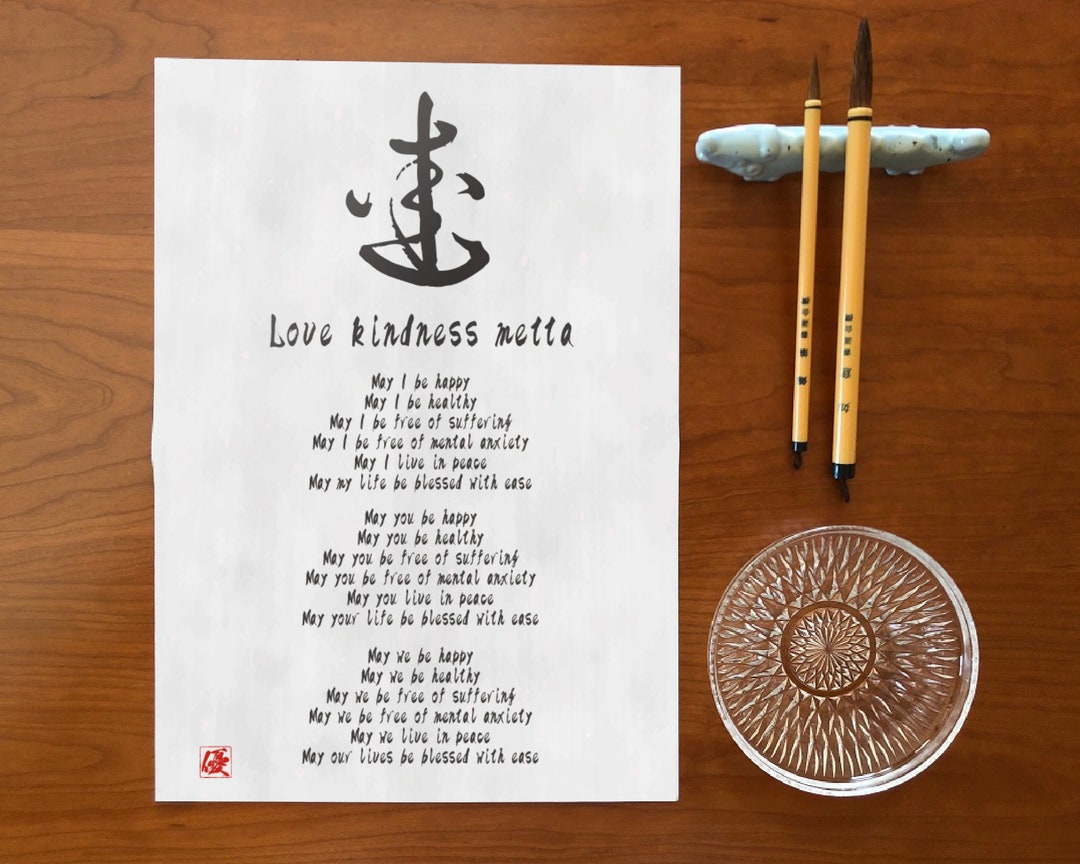 Love kindness metta
May I be happy
May I be healthy
May I be free of suffering
May I be free of mental anxiety
May I live in peace
May my life be blessed with ease
May you be happy
May you be healthy
May you be free of suffering
May you be free of mental anxiety
May you live in peace
May your life be blessed with ease
May we be happy
May we be healthy
May we be free of suffering
May we be free of mental anxiety
May we live in peace
May our lives be blessed with ease
優